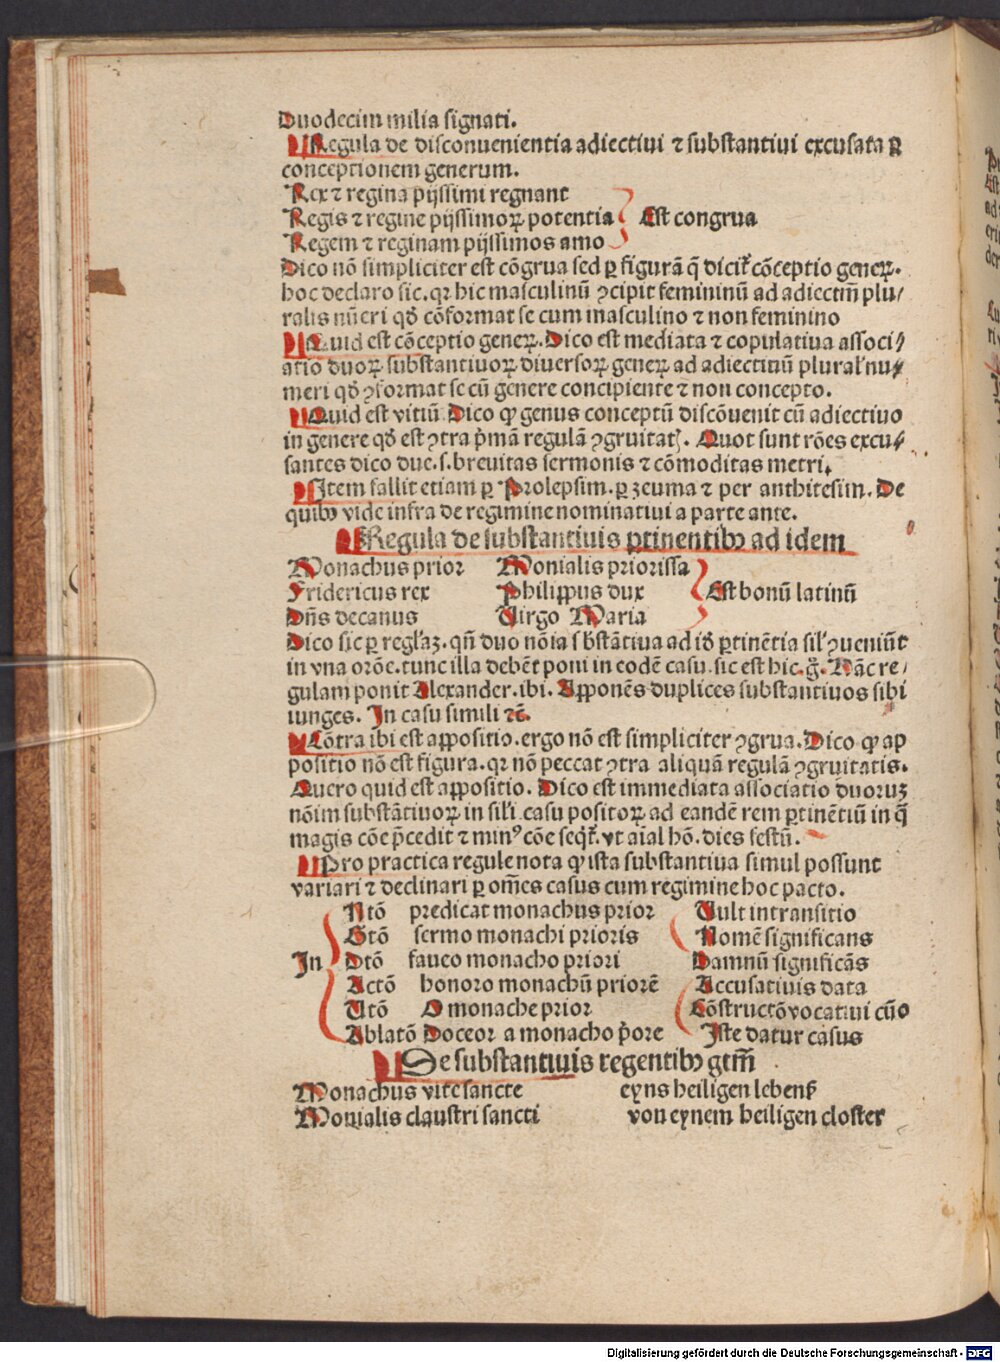 Duodecim milia signati.
¶ Regula de disconuenientia adiectiui ⁊ substantiui excusata ꝑ
conceptionem generum.
Rex ⁊ regina pijssimi regnant
Regis ⁊ regine pijssimoꝝ potentia Est congrua
Regem ⁊ reginam pijssimos amo
Dico nō simpliciter est cōgrua sed ꝑ figurā q̄ dicit̄ cōceptio geneꝝ.
hoc declaro sic. qꝛ hic masculinū ꝯcipit femininū ad adiectm̄ plu/
ralis nūeri qd̄ cōformat se cum masculino ⁊ non feminino
¶ Quid est cōceptio geneꝝ. Dico est mediata ⁊ copulatiua associ/
atio duoꝝ substantiuoꝝ diuersoꝝ geneꝝ ad adiectiuū plural' nu/
meri qd̄ ꝯformat se cū genere concipiente ⁊ non concepto.
¶ Quid est vitiū Dico ꝙ genus conceptū discōuenit cū adiectiuo
in genere qd̄ est ꝯtra p̄mā regulā ꝯgruitatꝭ. Quot sunt rōes excu/
santes dico due. s. breuitas sermonis ⁊ cōmoditas metri.
¶ Item fallit etiam ꝑ Prolepsim. ꝑ zeuma ⁊ per anthitesim. De
quibꝫ vide infra de regimine nominatiui a parte ante.
¶ Regula de substantiuis ꝑtinentibꝫ ad idem
Monachus prior Monialis priorissa
Fridericus rex Philippus dux Est bonū latinū
Dn̄s decanus Uirgo Maria
Dico sic ꝑ regl'aꝫ. qn̄ duo nōia sb̄stātiua ad id̄ ꝑtinētia sil' ꝯueniūt
in vna orōe. tunc illa debēt poni in eodē casu. sic est hic. g̊. Hāc re/
gulam ponit Alexander. ibi. Apponēs duplices substantiuos sibi
iunges. In casu simili ⁊c̄.
¶ Cōtra ibi est appositio. ergo nō est simpliciter ꝯgrua. Dico ꝙ ap
positio nō est figura. qꝛ nō peccat ꝯtra aliquā regulā ꝯgruitatis.
Quero quid est appositio. Dico est immediata associatio duoruꝫ
nōim substātiuoꝝ in sil'i casu positoꝝ ad eandē rem ꝑtinētiū in q̄
magis cōe p̄cedit ⁊ minꝰ cōe seqt̄. vt aīal hō. dies festū.
¶ Pro practica regule nota ꝙ ista substantiua simul possunt
variari ⁊ declinari ꝑ om̄es casus cum regimine hoc pacto.
Ntō predicat monachus prior Uult intransitio
Gtō sermo monachi prioris Nomē significans
In Dtō faueo monacho priori Damnū significās
Actō honoro monachū priorē Accusatiuis data
Utō O monache prior Cōstructō vocatiui cūo
Ablatō Doceor a monacho p̄ore Iste datur casus
¶ De substantiuis regentibꝫ gtm̄
Monachus vite sancte eyns heiligen lebenß
Monialis claustri sancti von eynem heiligen closter
Digitalisierung gefördert durch die Deutsche Forschungsgemeinschaft - DFG